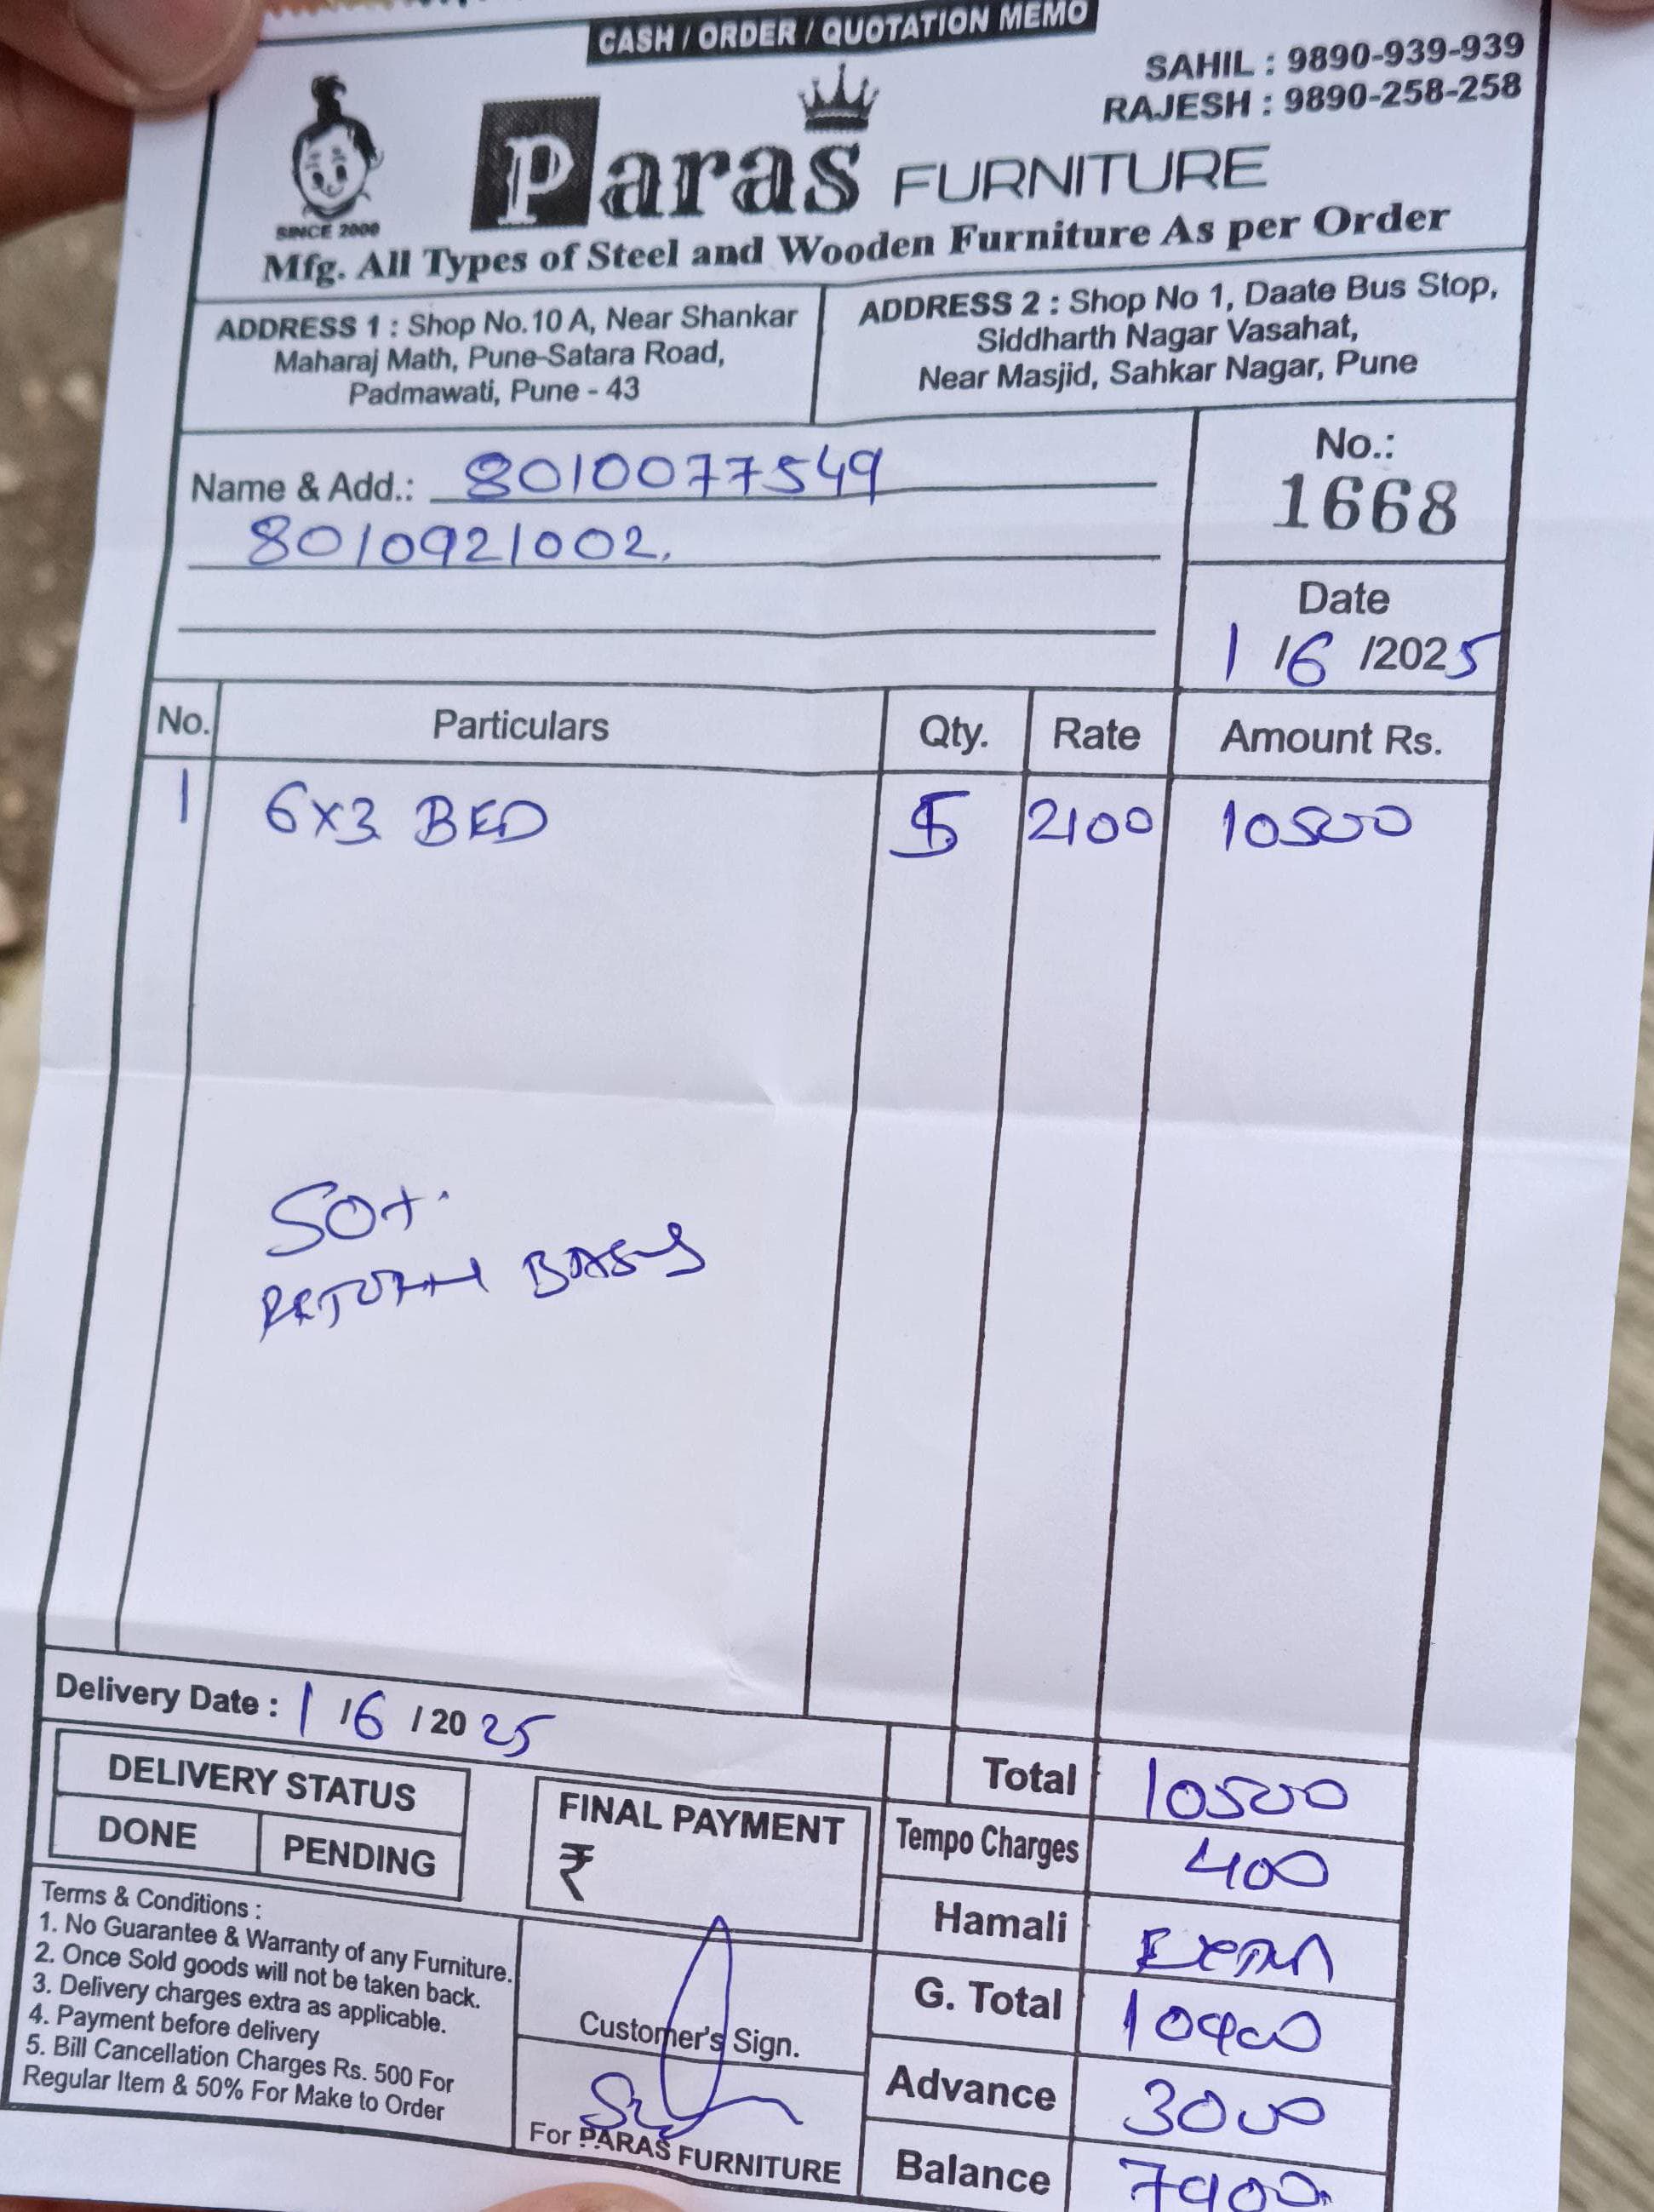 CASH / ORDER / QUOTATION MEMO
SAHIL : 9890-939-939
RAJESH : 9890-258-258
SINCE 2000
Paras FURNITURE
Mfg. All Types of Steel and Wooden Furniture As per Order
ADDRESS 1 : Shop No.10 A, Near Shankar
Maharaj Math, Pune-Satara Road,
Padmawati, Pune - 43
ADDRESS 2 : Shop No 1, Daate Bus Stop,
Siddharth Nagar Vasahat,
Near Masjid, Sahkar Nagar, Pune
Name & Add.: 8010077549
8010921002.
No.:
1668
Date
1/6/2025
No. Particulars Qty. Rate Amount Rs.
1 6x3 BED 5 2100 10500
50%
RETURN BASIS
Delivery Date : 1/6/2025
DELIVERY STATUS
DONE PENDING
FINAL PAYMENT
₹
Total 10500
Tempo Charges 400
Hamali EXTRA
G. Total 10900
Advance 3000
Balance 7900
Terms & Conditions :
1. No Guarantee & Warranty of any Furniture.
2. Once Sold goods will not be taken back.
3. Delivery charges extra as applicable.
4. Payment before delivery
5. Bill Cancellation Charges Rs. 500 For
Regular Item & 50% For Make to Order
Customer's Sign.
For PARAS FURNITURE